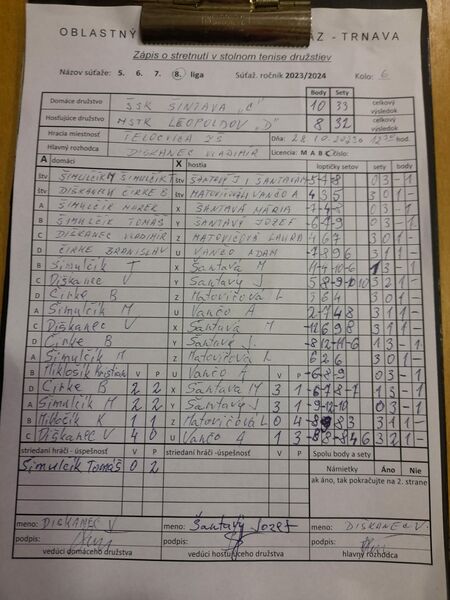 OBLASTNÝ AZ - TRNAVA
Zápis o stretnutí v stolnom tenise družstiev
Názov súťaže: 5. 6. 7. 8. liga Súťaž. ročník 2023/2024 Kolo: 6
Body Sety
Domáce družstvo ŠSK ŠINTAVA "C" 10 33 celkový
Hosťujúce družstvo MSTK LEOPOLDOV "D" 8 32 výsledok
Hracia miestnosť TELOCVIČŇA ZŠ Dňa: 28.10. hod.
Hlavný rozhodca DISKANEC VLADIMÍR Licencia: M A B C číslo:
A domáci X hostia loptičky setov sety body
štv ŠIMULČÍK M ŠIMULČÍK T štv ŠANTAVÝ J ŠANTAVÁ M 0 3 - 1
štv DISKANEC V CIRKE B štv MATOVIČOVÁ VANČO A 4 3 5 3 0 1 -
A ŠIMULČÍK MAREK X ŠANTAVÁ MÁRIA 0 3 - 1
B ŠIMULČÍK TOMÁŠ Y ŠANTAVÝ JOZEF -6-1-9 0 3 - 1
C DISKANEC VLADIMÍR Z MATOVIČOVÁ LAURA 4 6 7 3 0 1 -
D CIRKE BRANISLAV U VANČO ADAM 3 1 1 -
B Šimulčík T X Šantavá M 1 3 - 1
C Diskanec V Y Šantavý J 3 2 1 -
D Cirke B Z Matovičová L 3 0 1 -
A Šimulčík M U Vančo A 2-7 4 8 3 1 1 -
C Diskanec V X Šantavá M -12 6 9 8 3 1 1 -
D Cirke B Y Šantavý J -8-12 11-6 1 3 - 1
A Šimulčík M Z Matovičová L 6 2 6 3 0 1 -
B Mikločík Kristián V P U Vančo A V P -6-8-9 0 3 - 1
D Cirke B 2 2 X Šantavá M 3 1 -6-7 8-7 1 3 - 1
A Šimulčík M 2 2 Y Šantavý J 3 1 -9-12-10 0 3 - 1
B Mikločík K 1 1 Z Matovičová L 0 4 3 1 1 -
C Diskanec V 4 0 U Vančo A 1 3 -8 8-8 4 6 3 2 1 -
striedaní hráči - úspešnosť V P striedaní hráči - úspešnosť V P Spolu body a sety
Šimulčík Tomáš 0 2 Námietky Áno Nie
ak áno, tak pokračujte na 2. strane
meno: DISKANEC V meno: Šantavý Jozef meno: DISKANEC V.
podpis: podpis: podpis:
vedúci domáceho družstva vedúci hosťujúceho družstva hlavný rozhodca